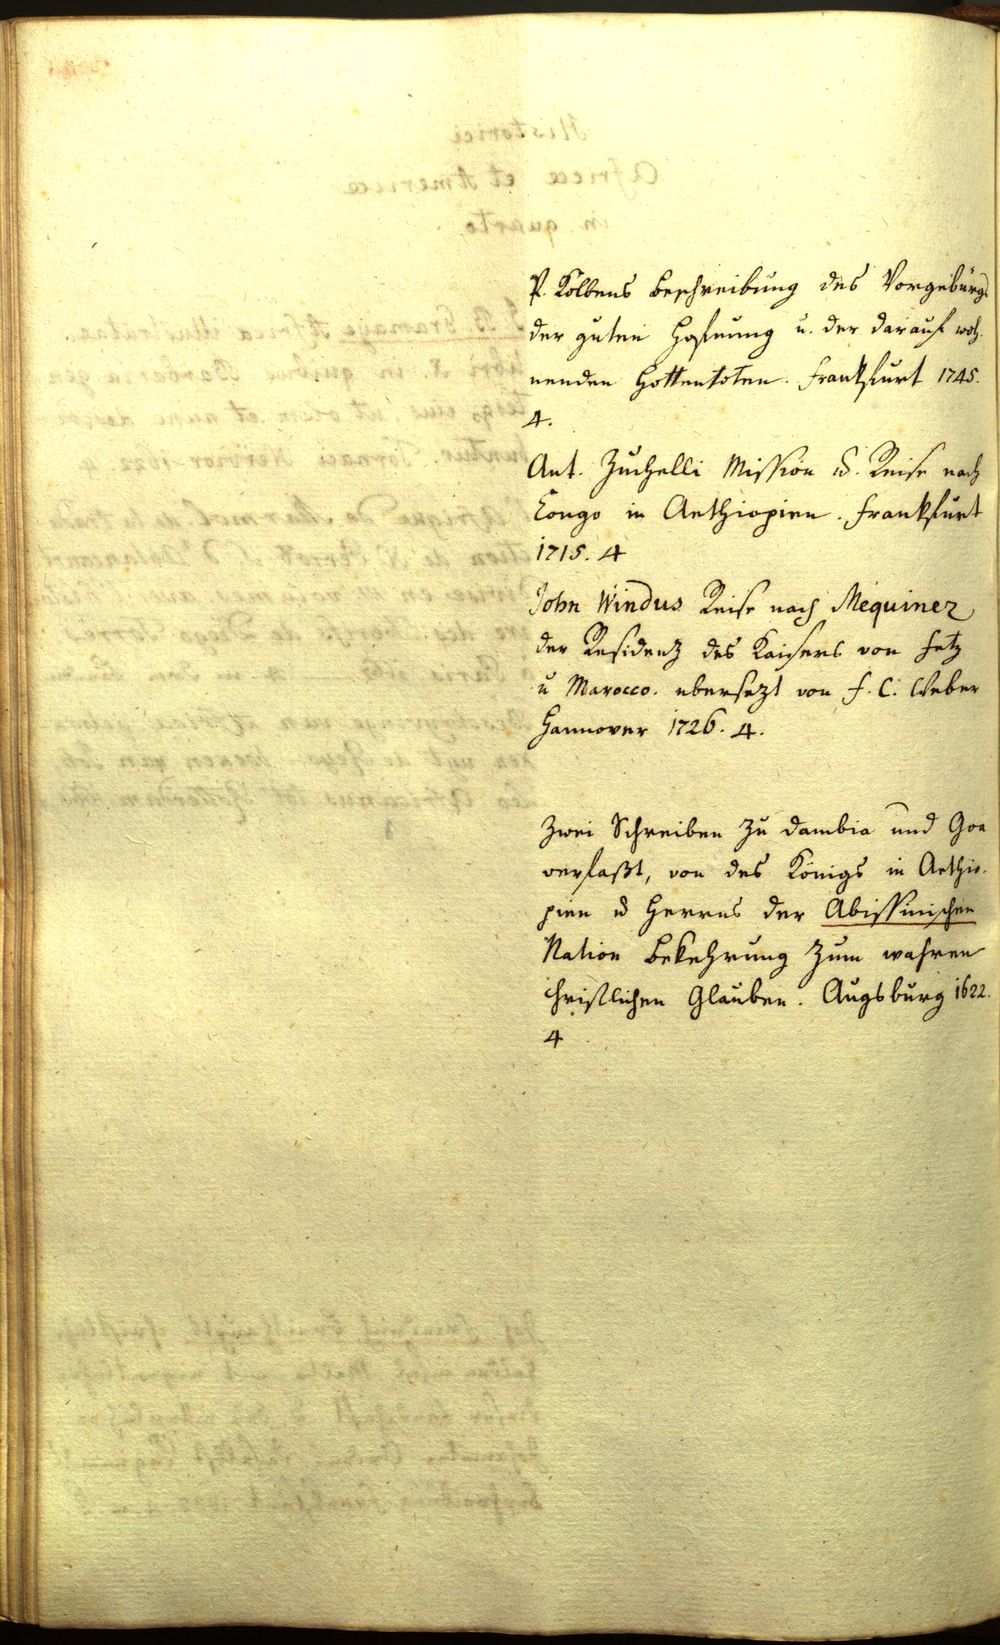 P. Kolbens Beschreibung des Vorgebürgs
der guten Hofnung u. der darauf woh-
nenden Hottentoten. Frankfurt 1745.
4.
Ant. Zuchelli Mission u. Reise nach
Congo in Aethiopien. Frankfurt
1715. 4
John Windus Reise nach Mequinez
der Residenz des Kaisers von Fetz
u Marocco. ubersezt von F. C. Weber
Hannover 1726. 4.
Zwei Schreiben zu Dambia und Goa
verfaßt, von des Königs in Aethio-
pien u Herrns der Abissinischen
Nation Bekehrung zum wahren
christlichen Glauben. Augsburg 1622.
4